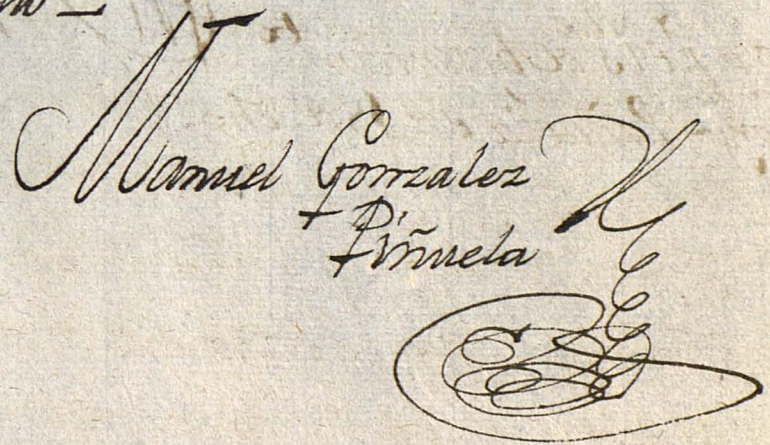 Manuel Gonzalez
Piñuela